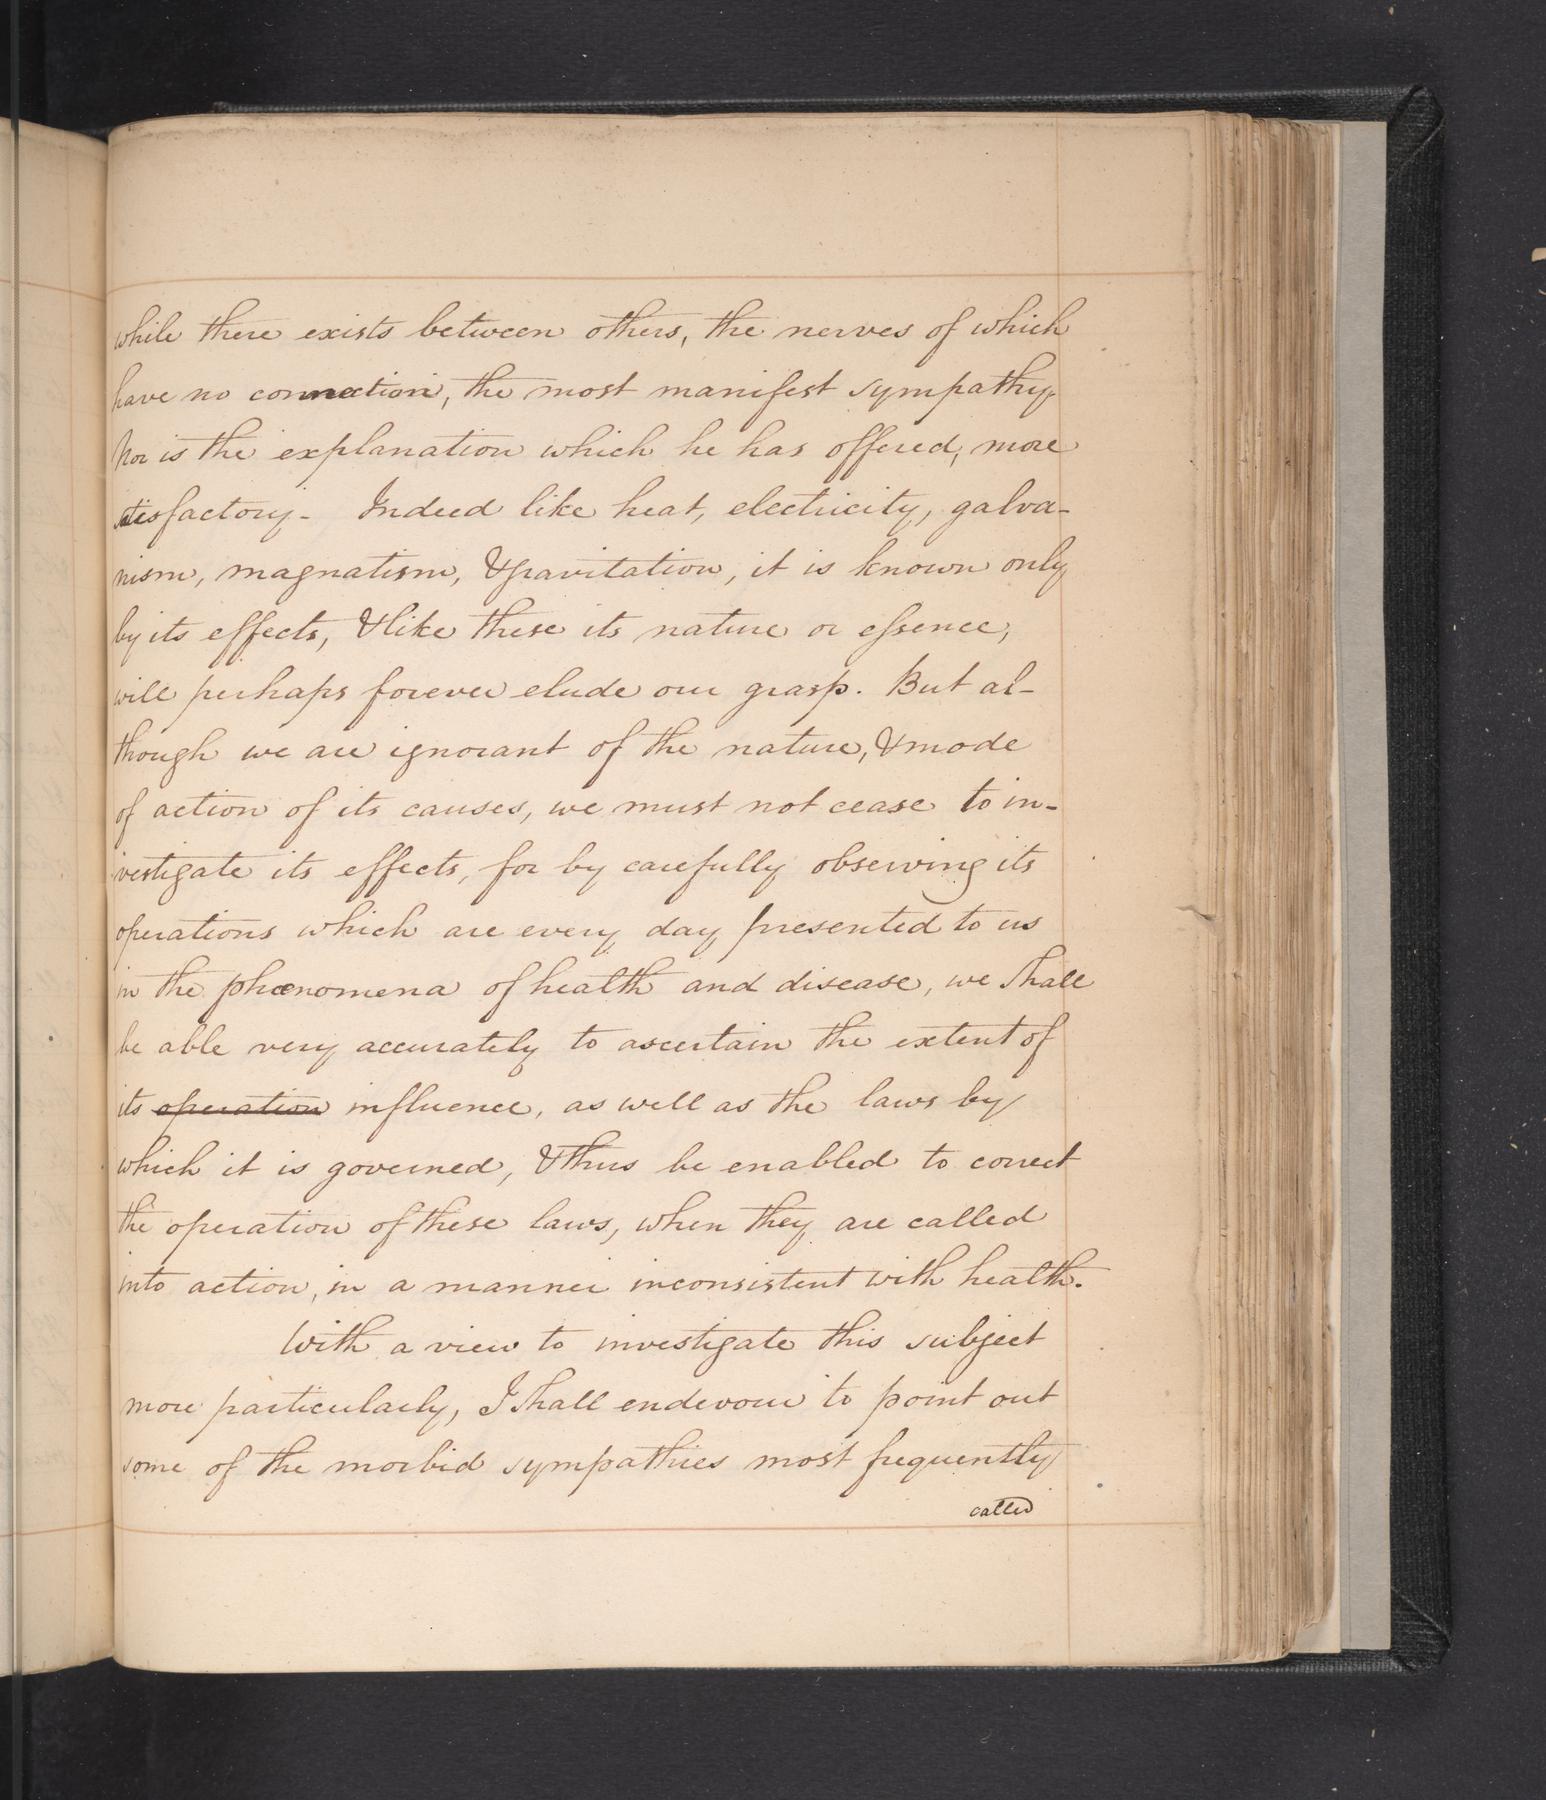 while there exists between others, the nerves of which
have no connection, the most manifest sympathy.
Nor is the explanation which he has offered, more
satisfactory - Indeed like heat, electricity, galva-
nism, magnatism, & gravitation, it is known only
by its effects, & like these its nature or essence,
will perhaps forever elude our grasp. But al-
though we are ignorant of the nature, & mode
of action of its causes, we must not cease to in-
vestigate its effects, for by carefully observing its
operations which are every day presented to us
in the phœnomena of health and disease, we shall
be able very accurately to ascertain the extent of
its operation influence, as well as the laws by
which it is governed, & thus be enabled to correct
the operation of these laws, when they are called
into action, in a manner inconsistent with health.
With a view to investigate this subject
more particularly, I shall endevour to point out
some of the morbid sympathies most frequently
called